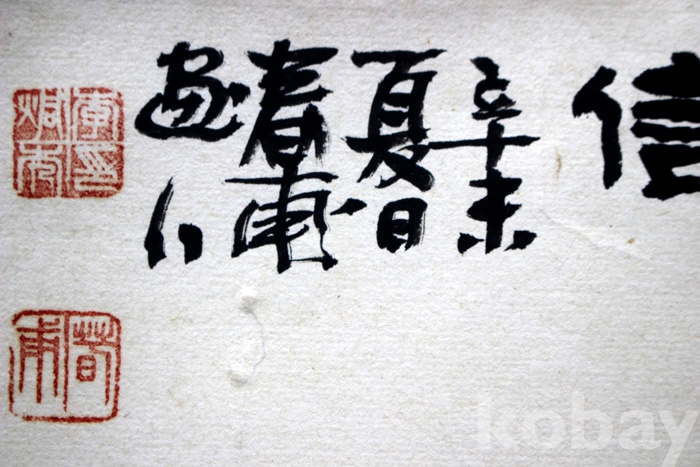 信
辛未
夏日
春甫
画人
春甫
kobay